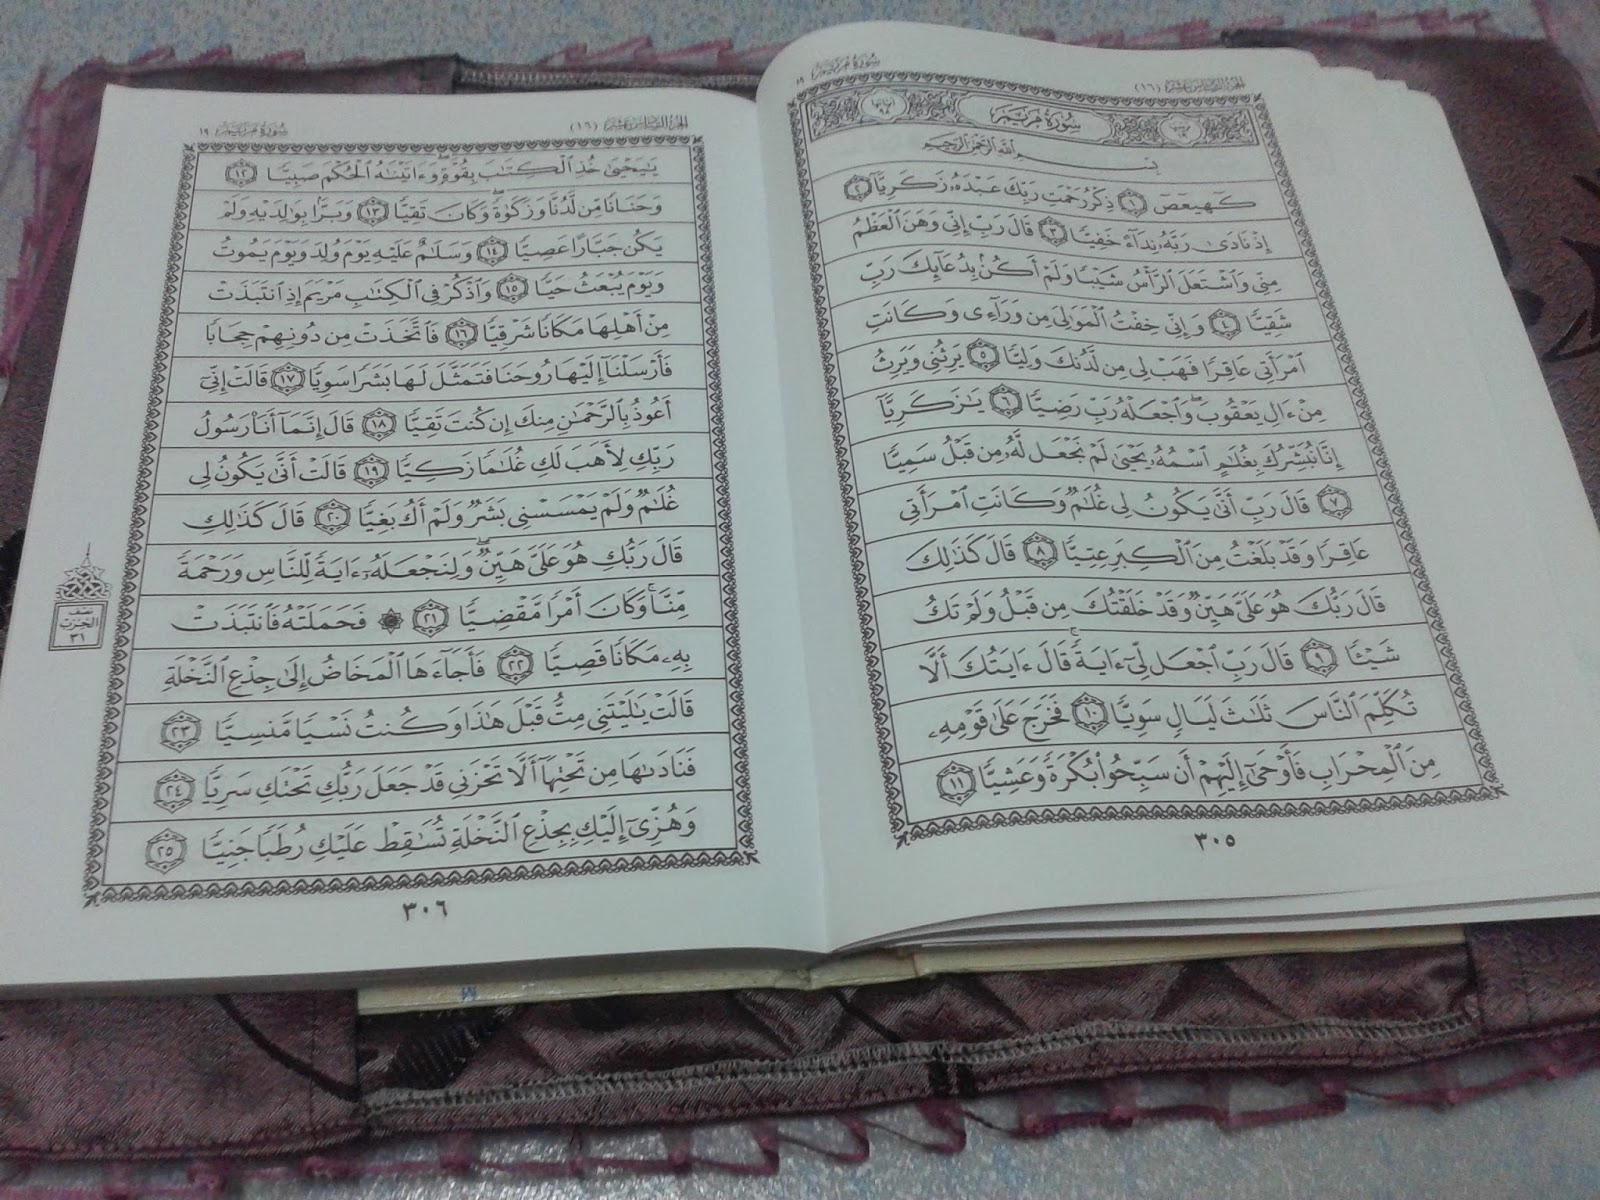 سُورَةُ مَرْيَمَ ١٩
الجُزْءُ السَّادِسَ عَشَرَ (١٦)
سُورَةُ مَرْيَمَ
بِسْمِ ٱللَّهِ ٱلرَّحْمَٰنِ ٱلرَّحِيمِ
كٓهيعٓصٓ ١ ذِكْرُ رَحْمَتِ رَبِّكَ عَبْدَهُۥ زَكَرِيَّآ ٢
إِذْ نَادَىٰ رَبَّهُۥ نِدَآءً خَفِيًّا ٣ قَالَ رَبِّ إِنِّى وَهَنَ ٱلْعَظْمُ
مِنِّى وَٱشْتَعَلَ ٱلرَّأْسُ شَيْبًا وَلَمْ أَكُنۢ بِدُعَآئِكَ رَبِّ
شَقِيًّا ٤ وَإِنِّى خِفْتُ ٱلْمَوَٰلِىَ مِن وَرَآءِى وَكَانَتِ
ٱمْرَأَتِى عَاقِرًا فَهَبْ لِى مِن لَّدُنكَ وَلِيًّا ٥ يَرِثُنِى وَيَرِثُ
مِنْ ءَالِ يَعْقُوبَ ۖ وَٱجْعَلْهُ رَبِّ رَضِيًّا ٦ يَٰزَكَرِيَّآ
إِنَّا نُبَشِّرُكَ بِغُلَٰمٍ ٱسْمُهُۥ يَحْيَىٰ لَمْ نَجْعَل لَّهُۥ مِن قَبْلُ سَمِيًّا
٧ قَالَ رَبِّ أَنَّىٰ يَكُونُ لِى غُلَٰمٌ وَكَانَتِ ٱمْرَأَتِى
عَاقِرًا وَقَدْ بَلَغْتُ مِنَ ٱلْكِبَرِ عِتِيًّا ٨ قَالَ كَذَٰلِكَ
قَالَ رَبُّكَ هُوَ عَلَىَّ هَيِّنٌ وَقَدْ خَلَقْتُكَ مِن قَبْلُ وَلَمْ تَكُ
شَيْـًٔا ٩ قَالَ رَبِّ ٱجْعَل لِّىٓ ءَايَةً ۚ قَالَ ءَايَتُكَ أَلَّا
تُكَلِّمَ ٱلنَّاسَ ثَلَٰثَ لَيَالٍ سَوِيًّا ١٠ فَخَرَجَ عَلَىٰ قَوْمِهِۦ
مِنَ ٱلْمِحْرَابِ فَأَوْحَىٰٓ إِلَيْهِمْ أَن سَبِّحُوا۟ بُكْرَةً وَعَشِيًّا ١١
٣٠٥
سُورَةُ مَرْيَمَ ١٩
الجُزْءُ السَّادِسَ عَشَرَ (١٦)
يَٰيَحْيَىٰ خُذِ ٱلْكِتَٰبَ بِقُوَّةٍ ۖ وَءَاتَيْنَٰهُ ٱلْحُكْمَ صَبِيًّا ١٢
وَحَنَانًا مِّن لَّدُنَّا وَزَكَوٰةً ۖ وَكَانَ تَقِيًّا ١٣ وَبَرًّۢا بِوَٰلِدَيْهِ وَلَمْ
يَكُن جَبَّارًا عَصِيًّا ١٤ وَسَلَٰمٌ عَلَيْهِ يَوْمَ وُلِدَ وَيَوْمَ يَمُوتُ
وَيَوْمَ يُبْعَثُ حَيًّا ١٥ وَٱذْكُرْ فِى ٱلْكِتَٰبِ مَرْيَمَ إِذِ ٱنتَبَذَتْ
مِنْ أَهْلِهَا مَكَانًا شَرْقِيًّا ١٦ فَٱتَّخَذَتْ مِن دُونِهِمْ حِجَابًا
فَأَرْسَلْنَآ إِلَيْهَا رُوحَنَا فَتَمَثَّلَ لَهَا بَشَرًا سَوِيًّا ١٧ قَالَتْ إِنِّىٓ
أَعُوذُ بِٱلرَّحْمَٰنِ مِنكَ إِن كُنتَ تَقِيًّا ١٨ قَالَ إِنَّمَآ أَنَا۠ رَسُولُ
رَبِّكِ لِأَهَبَ لَكِ غُلَٰمًا زَكِيًّا ١٩ قَالَتْ أَنَّىٰ يَكُونُ لِى
غُلَٰمٌ وَلَمْ يَمْسَسْنِى بَشَرٌ وَلَمْ أَكُ بَغِيًّا ٢٠ قَالَ كَذَٰلِكِ
قَالَ رَبُّكِ هُوَ عَلَىَّ هَيِّنٌ ۖ وَلِنَجْعَلَهُۥٓ ءَايَةً لِّلنَّاسِ وَرَحْمَةً
مِّنَّا ۚ وَكَانَ أَمْرًا مَّقْضِيًّا ٢١ ۞ فَحَمَلَتْهُ فَٱنتَبَذَتْ
بِهِۦ مَكَانًا قَصِيًّا ٢٢ فَأَجَآءَهَا ٱلْمَخَاضُ إِلَىٰ جِذْعِ ٱلنَّخْلَةِ
قَالَتْ يَٰلَيْتَنِى مِتُّ قَبْلَ هَٰذَا وَكُنتُ نَسْيًا مَّنسِيًّا ٢٣
فَنَادَىٰهَا مِن تَحْتِهَآ أَلَّا تَحْزَنِى قَدْ جَعَلَ رَبُّكِ تَحْتَكِ سَرِيًّا ٢٤
وَهُزِّىٓ إِلَيْكِ بِجِذْعِ ٱلنَّخْلَةِ تُسَٰقِطْ عَلَيْكِ رُطَبًا جَنِيًّا ٢٥
نصف
الحزب
٣١
٣٠٦